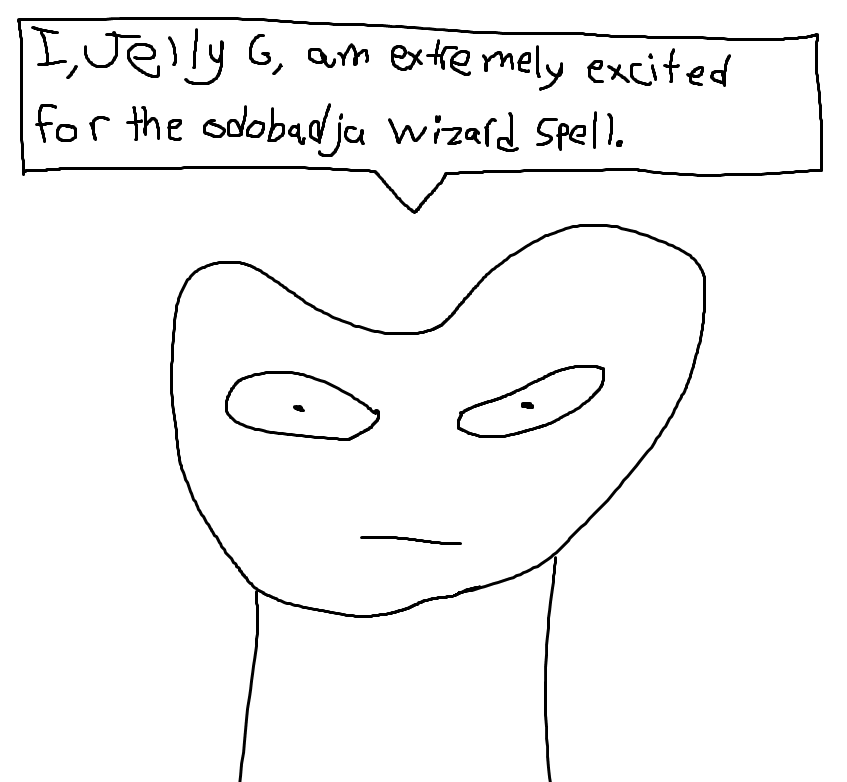 I, Jelly G, am extremely excited
for the odobadja wizard spell.